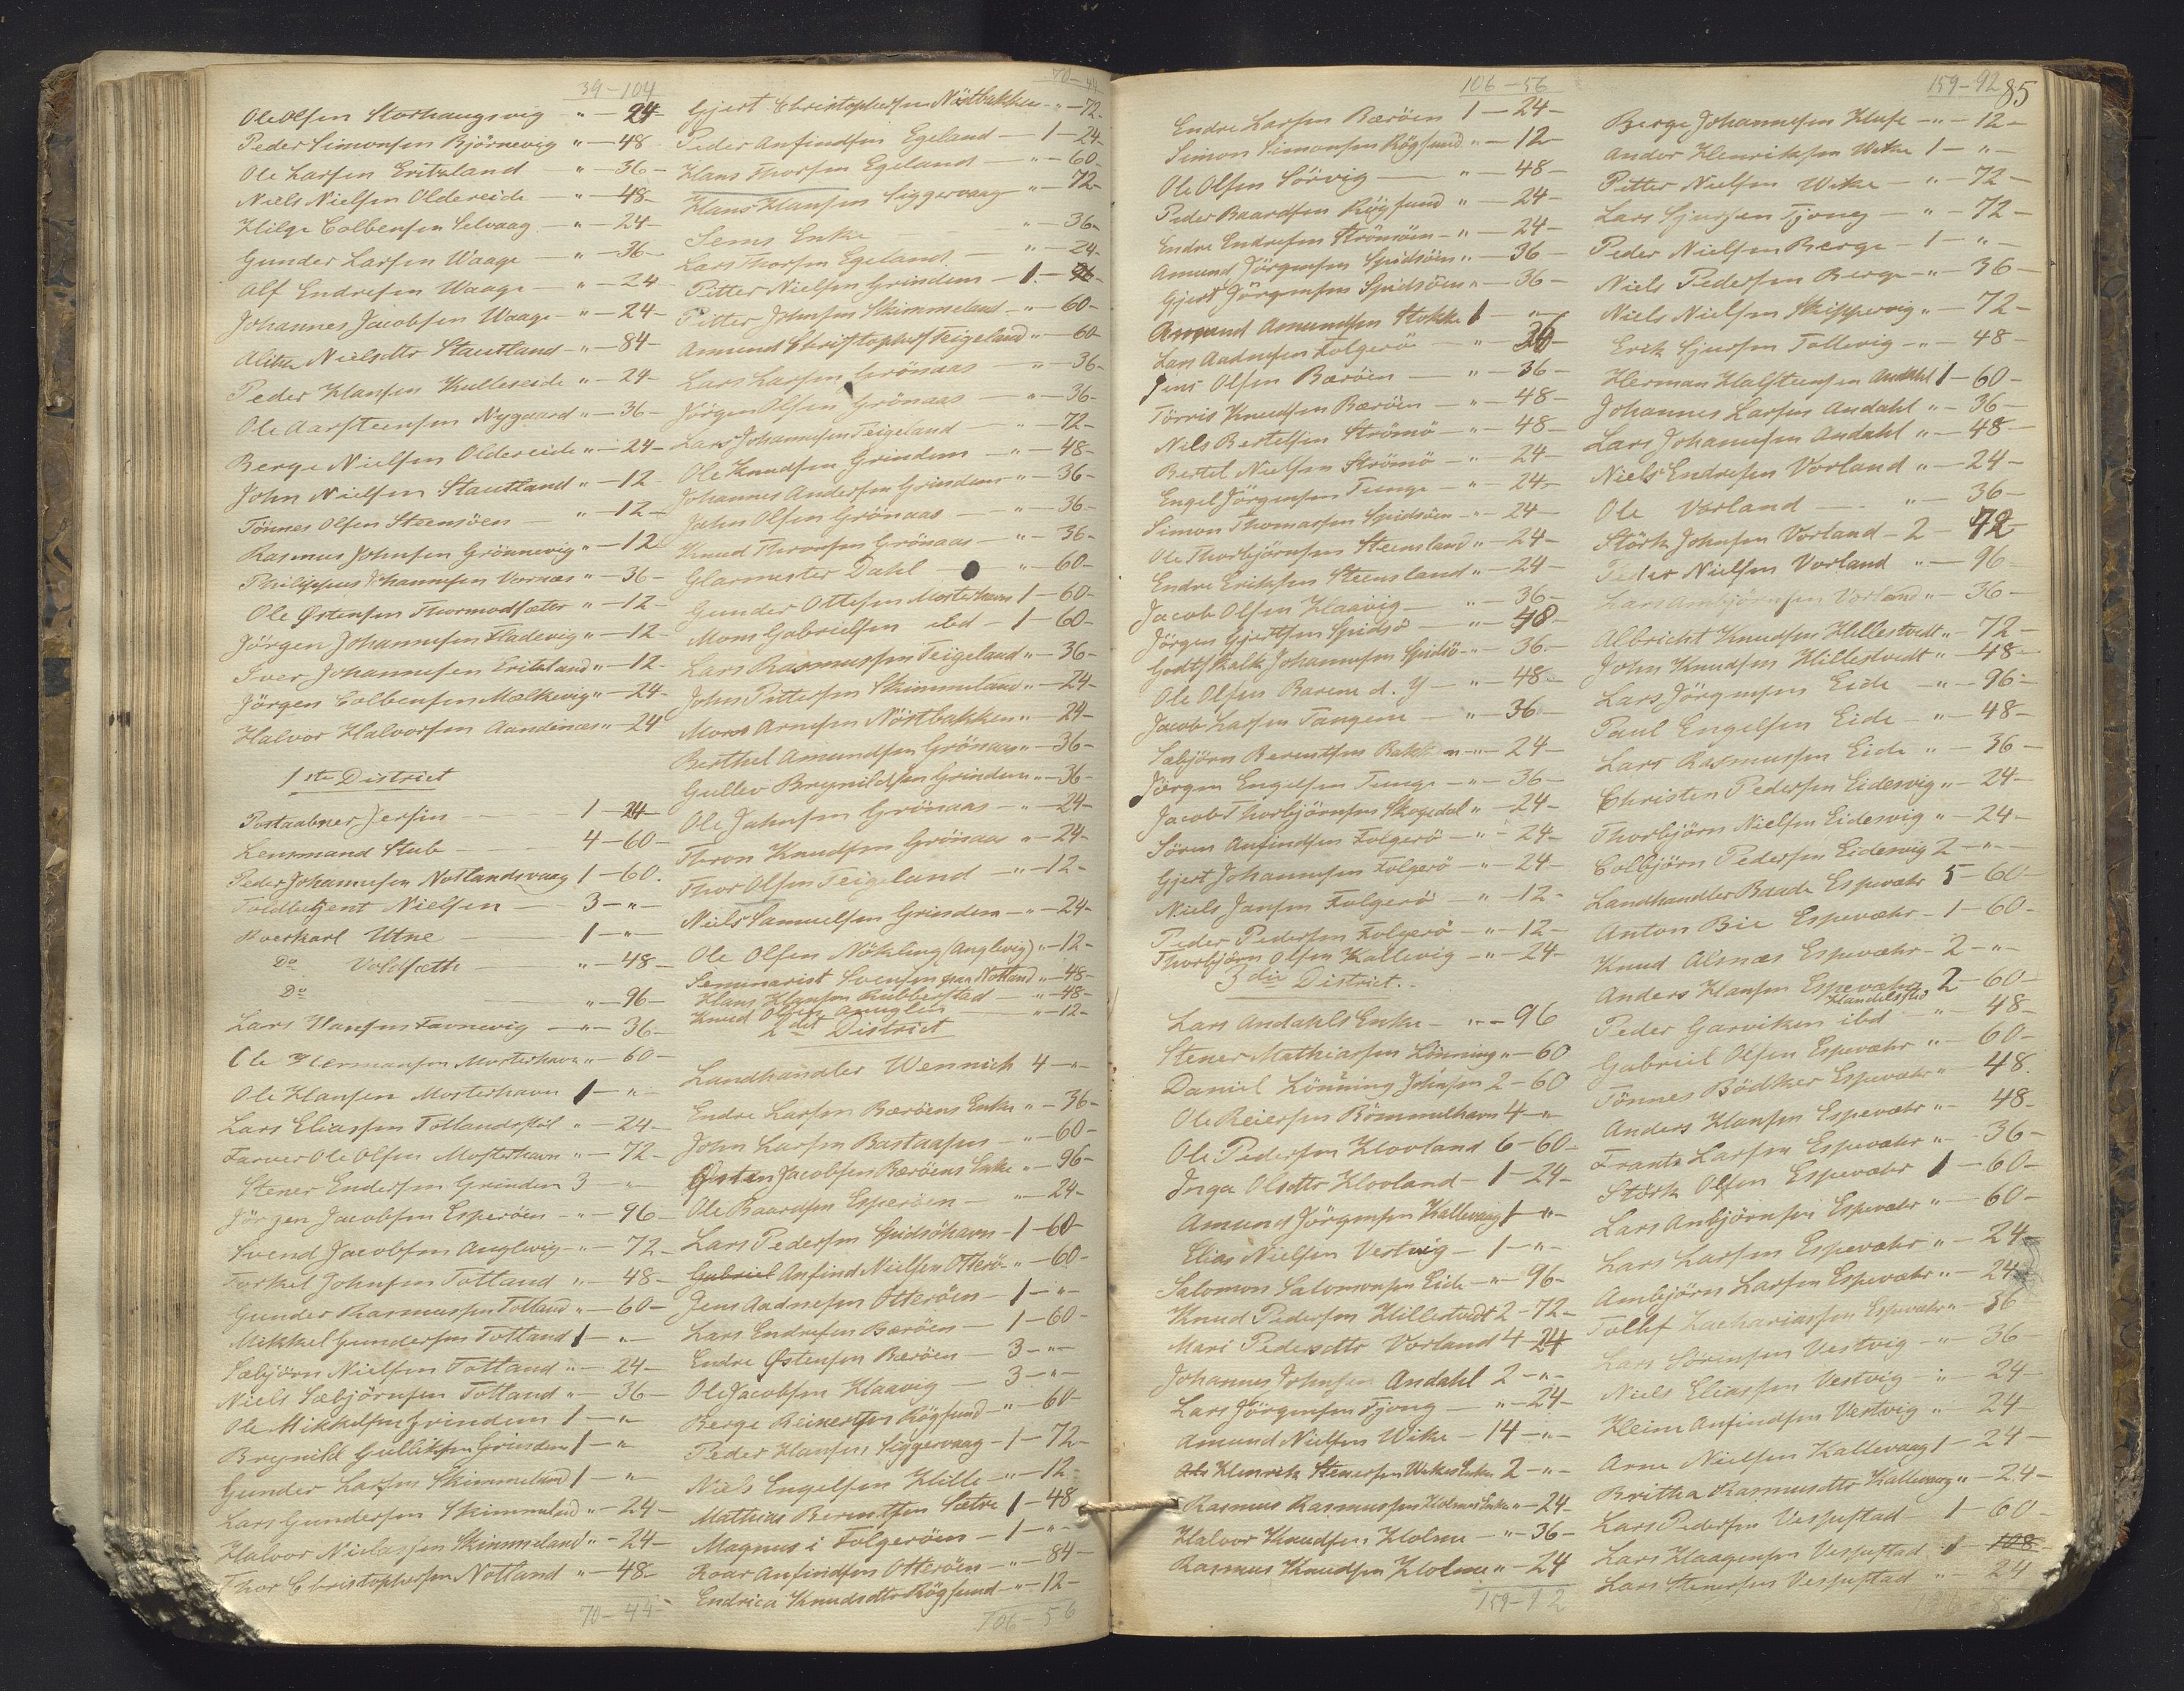 39-104
Ole Olsen Storhaugsvig " - 24-
Peder Simonsen Bjørnevig " - 48
Ole Larsen Eritzland " - 36-
Niels Nielsen Oldereide - " - 48-
Hilge Colbensen Selvaag - " - 24-
Gunder Larsen Waage - " - 36-
Alf Endresen Waage - " - 24
Johannes Jacobsen Waage - " - 24-
Alitha Nielsdtr Stautland - " - 84-
Peder Hansen Kulleseide " - 24-
Ole Aarsteensen Nygaard " - 36-
Berge Nielsen Oldereide " - 24-
John Nielsen Stautland " - 12-
Tönnes Olsen Steensöen - " - 12-
Rasmus Johnsen Grönnevig " - 12
Philippus Johannesen Vornæs " - 36-
Ole Østensen Thormodsæter " - 12-
Jörgen Johannesen Fladevig " - 12-
Iver Johannesen Eritzland " - 12-
Jörgen Colbensen Mælkevig " - 24-
Halvor Halvorsen Aandenæs " - 24
1ste District
Postaabner Jersin - 1 - 24-
Lensmand Stub - 4-60-
Peder Johannesen Notlandsvaag 1 - 60.
Toldbetjent Nielsen - 3 - " -
Overkarl Utne - 1 - " -
Do Voldsæth - " - 48-
Do " - 96-
Lars Hansen Favnevig - " - 36-
Ole Hermansen Mosterhavn " - 60-
Ole Hansen Mosterhavn 1 - " -
Lars Eliassen Totlandsstöl " - 24-
Farver Ole Olsen Mosterhavn " - 72-
Stener Endersen Grinden 3 - " -
Jörgen Jacobsen Esperöen - " - 96-
Svend Jacobsen Auglevig - " - 72-
Torkel Johnsen Totland " - 48-
Gunder Rasmussen Totland " - 60-
Mikkel Gundersen Totland 1 - " -
Sæbjörn Nielsen Totland " - 24-
Niels Sæbjörnsen Totland " - 36-
Ole Mikkelsen Grindem 1 - " -
Brynild Gulliksen Grindem 1 - "
Gunder Larsen Skimmeland 1 - " -
Lars Gundersen Skimmeland " - 24-
Halvor Nielassen Skimmeland " - 24-
Thor Christophersen Notland " - 48-
70-44-
70-44
Gjert Christophersen Nöstbakken - " - 72-
Peder Anfindsen Egeland - 1 - 24-
Hans Thorsen Egeland - " - 60-
Hans Hansen Siggervaag " - 72-
Sems Enke " - 36-
Lars Thorsen Egeland - " - 24-
Pitter Nielsen Grindem - 1 - 96-
Pitter Johnsen Skimmeland - " - 60-
Amund Christophers Teigeland " - 60
Lars Larsen Grönaas - " - 36-
Jörgen Olsen Grönaas - " - 36-
Lars Johannesen Teigeland - " - 72-
Ole Knudsen Grindem - " - 48-
Johannes Andersen Grindem " - 36-
John Olsen Grönaas - " - 36-
Knud Thronsen Grönaas - " - 36-
Glarmester Dahl - " - 60-
Gunder Ottesen Mosterhavn 1 - 60-
Mons Gabrielsen ibd - 1 - 60-
Lars Rasmussen Teigeland " - 36-
John Pittersen Skimmeland " - 24-
Mons Arnesen Nöstbakken " - 24-
Berthel Amundsen Grönaas " - 36-
Gullev Brynildsen Grindem " - 36-
Ole Johnsen Grönaas - " - 24-
Thron Knudsen Grönaas " - 24-
Thor Olsen Teigeland - " - 12-
Niels Samuelsen Grindem - " - 24-
Ole Olsen Nökling (Auglevig) " - 12-
Seminarist Svensen paa Notland " - 48-
Hans Hansen Rubberstad - " - 48-
Knud Olsen Aauglen " - 12-
2det District
Landhandler Wennich 4 - " -
Endre Larsen Bæröens Enke " - 36-
John Larsen Bastaasen - " - 60-
Østen Jacobsen Bæröens Enke " - 96-
Ole Baardsen Esperöen - " - 24-
Lars Pedersen Spidsöhavn - 1 - 60
Gabriel Anfind Nielsen Otterö - " - 60-
Jens Aadnesen Otteröen - 1 - " -
Lars Endresen Bæröen - 1 - 60-
Endre Østensen Bæröen - 3 - " -
Ole Jacobsen Haavig - 3 - " -
Berge Reinertsen Rögsund - " - 60-
Peder Hansen Siggervaag - 1 - 72-
Niels Engelsen Hille - " - 12-
Mathias Berentsen Sætre 1 - 48
Magnus i Folgeröen - 1 - " -
Roar Anfindsen Otteröen - " - 84-
Endrica Knudsdtr Rögsund - " - 12-
106-56
106-56
Endre Larsen Bæröen 1 - 24-
Simon Simonsen Rögsund " - 12-
Ole Olsen Sörvig - " - 48-
Peder Baardsen Rögsund " - 24-
Endre Endresen Strömöen - " - 24-
Amund Jörgensen Spidsöen " - 36-
Gjert Jörgensen Spidsöen " - 36-
Amund Amundsen Stokke 1 - " -
Lars Aadnesen Folgerö - " - 36-
Jens Olsen Bæröen - " - 36-
Törris Knudsen Bæröen - " - 48-
Nils Bertelsen Strömö - " - 48-
Bertel Nielsen Strömö - " - 24-
Engel Jörgensen Tunge - " - 24-
Simon Thomassen Spidsöen - " - 24-
Ole Thorbjörnsen Steensland " - 24-
Endre Eriksen Steensland " - 24-
Jacob Olsen Haavig - " - 36-
Jörgen Gjertsen Spidsö - " - 48-
Godtskalk Johannesen Spidsö - " - 36-
Ole Olsen Barene d. y - " - 48-
Jacob Larsen Tangene - " - 36-
Sæbjörn Berentsen Bakken - " - 24-
Jörgen Engelsen Tunge - " - 36-
Jacob Thorbjörnsen Skogedal " - 24-
Sören Anfindsen Folgerö - " - 24-
Gjert Johannesen Folgerö - " - 24-
Niels Jansen Folgerö - " - 12-
Peder Pedersen Folgerö - " - 12-
Thorbjörn Olsen Kallevig - " - 24-
3die District.
Lars Andahls Enke - " - 96
Stener Mathiassen Lönning " - 60
Daniel Lönning Johnsen 2 - 60
Ole Reiersen Bömmelhavn 4 - " -
Ole Pedersen Hovland 6 - 60-
Inga Olsdtr Hovland - 1 - 24-
Amund Jörgensen Kallevaag 1 - " -
Elias Nielsen Vestvig - 1 - " -
Salomon Salomonsen Eide - " - 96-
Knud Pedersen Hillestvedt 2 - 72-
Mari Pedersdtr Vorland 4 - 24
Johannes Johnsen Andahl 2 - " -
Lars Jörgensen Tjong - " - 24-
Amund Nielsen Wike - 14 - " -
Henrik Stenersen Wikes Enke 2 - " -
Rasmus Rasmussen Holmes Enke " - 24-
Halvor Knudsen Holme - " - 36-
Rasmus Knudsen Holme " - 24
159-92
159-92
85
Berge Johannesen Huse - " - 12-
Ander Henriksen Wike 1 - " -
Pitter Nielsen Wike - " - 72-
Lars Sjursen Tjong - " - 72-
Peder Nielsen Berge - 1 - " -
Niels Pedersen Berge - " - 36-
Niels Nielsen Skippervig " - 72-
Erik Sjursen Tollevig - " - 48-
Herman Halsteensen Andahl 1 - 60-
Johannes Larsen Andahl " - 36-
Lars Johannesen Andahl " - 48-
Niels Endresen Vorland " - 24-
Ole Vorland - " - 36-
Störk Johnsen Vorland - 2 - 72-
Peder Nielsen Vorland " - 96
Lars Ambjörnsen Vorland " - 36-
Albricht Knudsen Hillestvedt " - 72-
John Knudsen Hillestvedt " - 48-
Lars Jörgensen Eide - " - 96-
Paul Engelsen Eide - " - 48-
Lars Rasmussen Eide " - 36-
Christen Pedersen Eidesvig " - 24-
Thorbjörn Nielsen Eidesvig " - 24-
Colbjörn Pedersen Eidesvig 2 - " -
Landhandler Baade Espevæhr 5 - 60-
Anton Bie Espevæhr - 1 - 60-
Knud Alsnæs Espevæhr - 2 - " -
Anders Hansen Espevæhr 2 - 60-
Handelsstd
Peder Garviken ibd - " - 48-
Gabriel Olsen Espevæhr " - 60-
Tönnes Bödker Espevæhr " - 48.
Anders Hansen Espevæhr " - 48-
Frantz Larsen Espevæhr " - 36-
Störk Olsen Espevæhr 1 - 60-
Lars Anbjörnsen Espevæhr " - 60-
Lars Larsen Espevæhr " - 24-
Ambjörn Larsen Espevæhr " - 24
Tollef Zachariassen Espevæhr " - 36
Lars Sörensen Vestvig - " - 36
Niels Eliassen Vestvig - " - 24
Heine Anfindsen Vestvig " - 24-
Arne Nielsen Kallevaag 1 - 24-
Britha Rasmusdtr Kallevaag " - 24-
Lars Pedersen Vespestad - 1 - 60-
Lars Haagensen Vespestad 1 - 108-
Lars Stenersen Vespestad " - 24